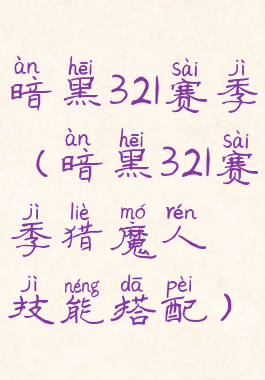 àn hēi sài jì
暗黑321赛季
àn hēi sài
（暗黑321赛
jì liè mó rén
季猎魔人
jì néng dā pèi
技能搭配）